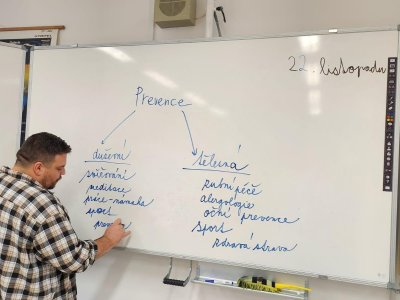 22. listopadu
Prevence
duševní
směřování
meditace
práce-námaha
sport
tělesná
zubní péče
alergologie
oční prevence
sport
zdravá strava